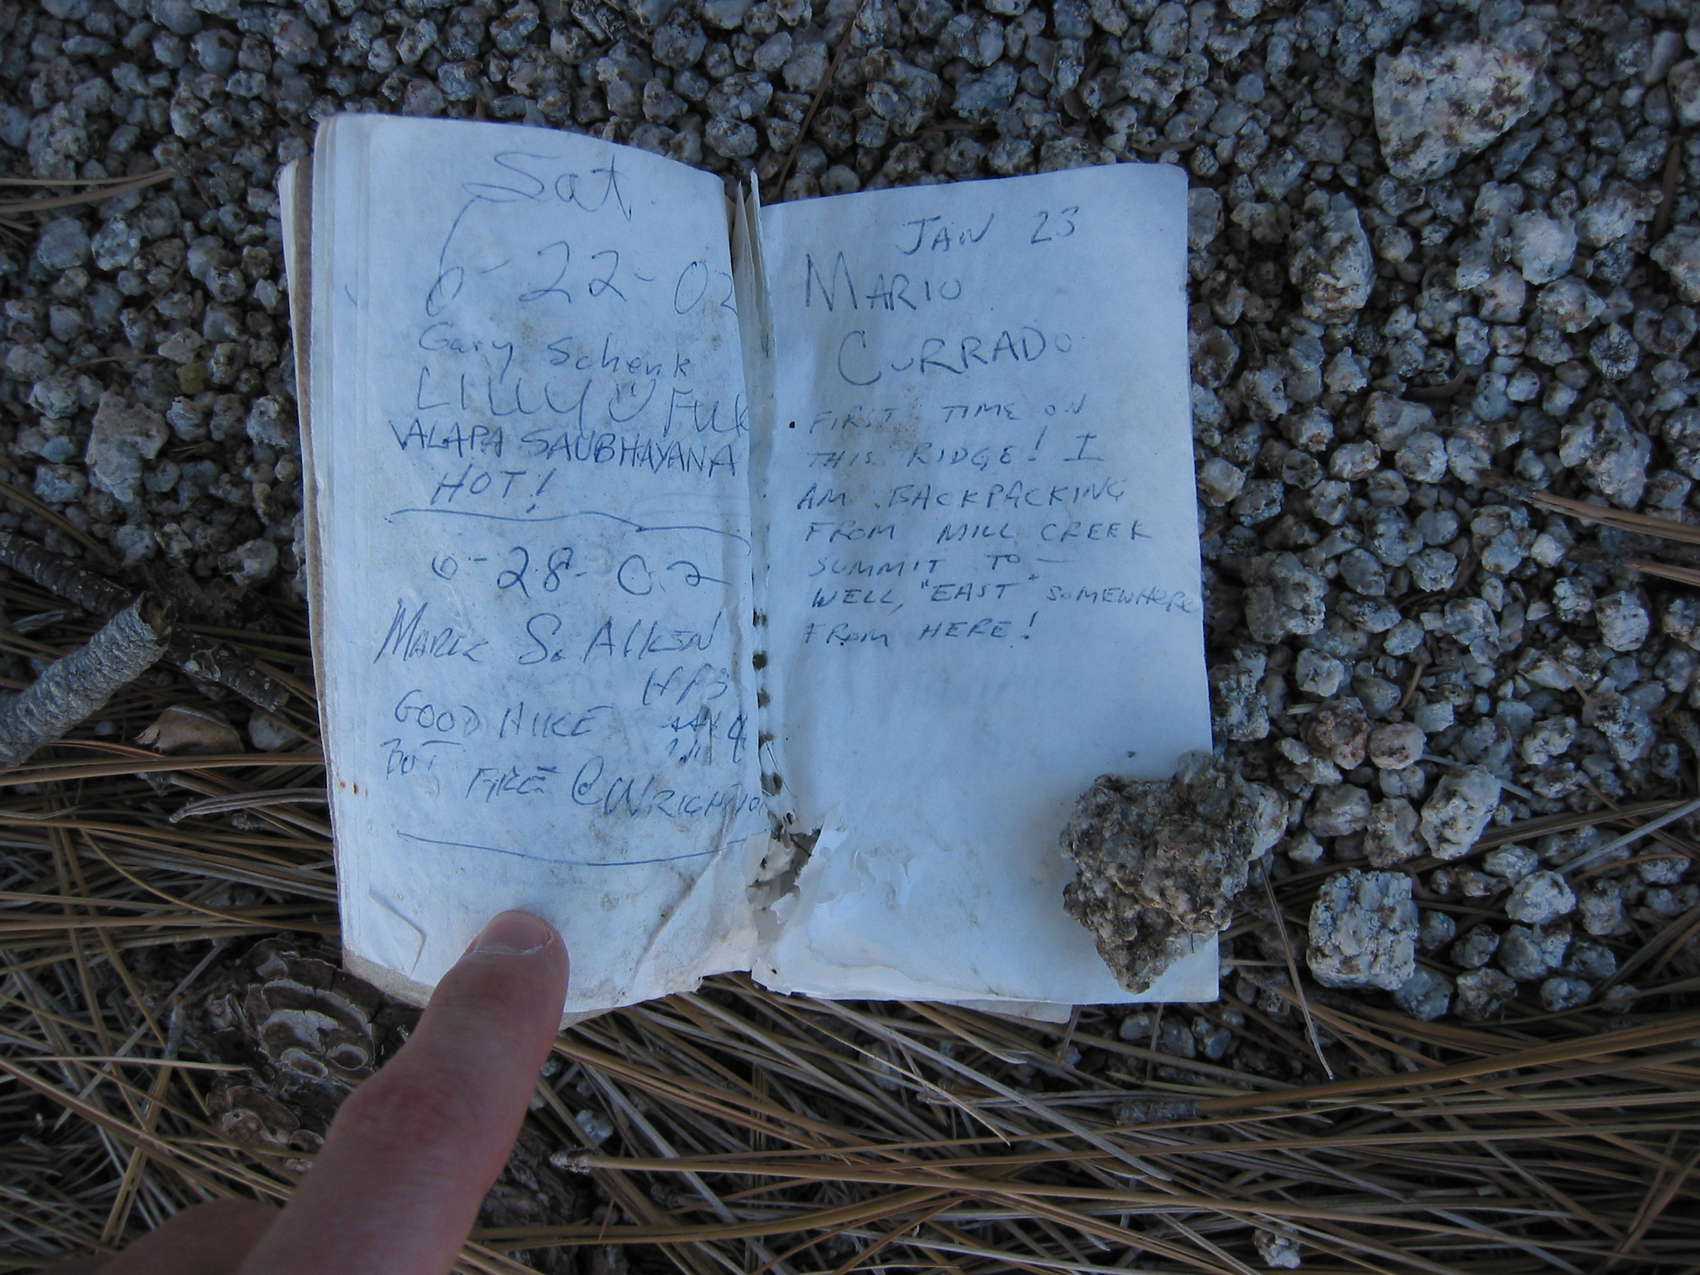 Sat.
6-22-02
Gary Schenk
LILLY
VALAPA SAUBHAYANA
HOT!
6-28-02
MARK S. AIKEN
HPS
GOOD HIKE
BUT FIRE @ WRIGHTWO
JAN 23
MARIO
CURRADO
FIRST TIME ON
THIS RIDGE! I
AM BACKPACKING
FROM MILL CREEK
SUMMIT TO —
WELL, "EAST" SOMEWHERE
FROM HERE!